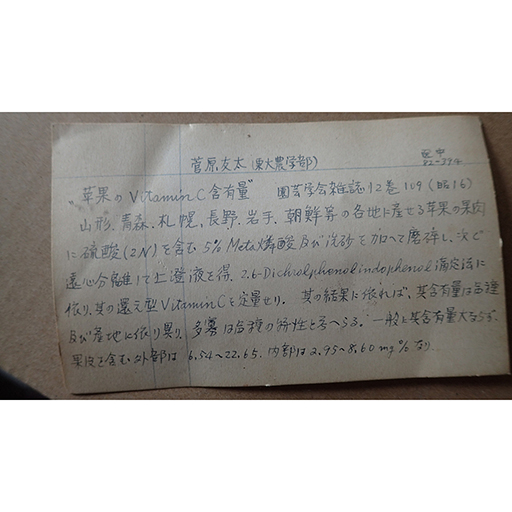 菅原友太(東大農学部)
82-394
"苹果のVitamin C含有量" 園芸学会雑誌12巻109(昭16)
山形、青森、札幌、長野、岩手、朝鮮等の各地に産せる苹果の果肉
に硫酸(2N)を含む5%Meta燐酸及び洗砂を加へて磨砕し、次で
遠心分離して上澄液を得、2.6-Dichrolphenolindophenol滴定法に
依り、其の還元型Vitamin Cを定量せり。其の結果に依れば、其含有量は品種
及び産地に依り異り、多寡は品種の特性と考へらる。一般に其含有量大ならず、
果皮を含む外部は6.54~22.65.内部は2.95~8.60mg%なり